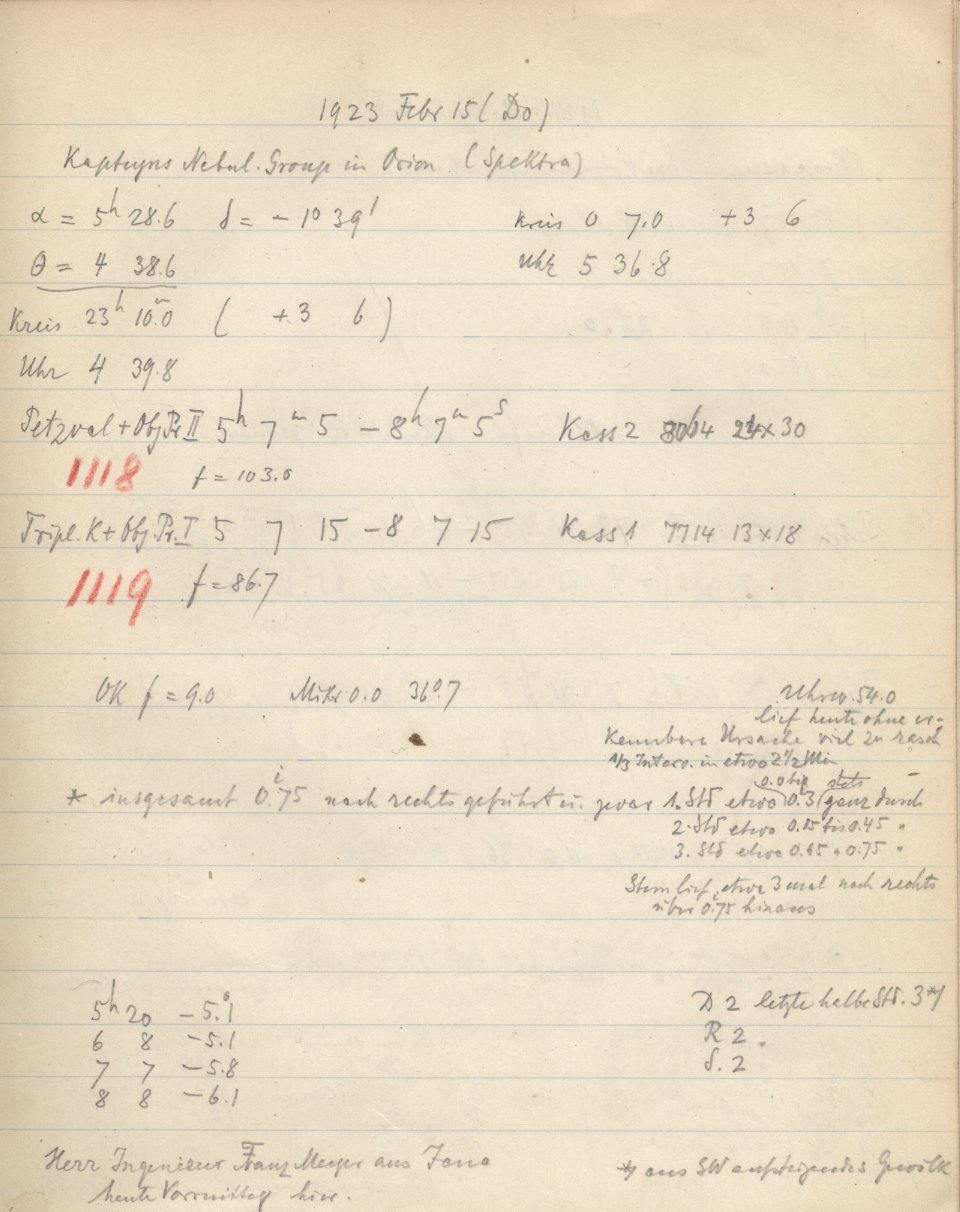 1923 Febr 15 (Do)
Kapteyns Nebul. Group in Orion (Spektra)
α = 5h 28.6 δ = - 1° 39' Kreis 0 7.0 +3 6
θ = 4 38.6 Uhr 5 36.8
Kreis 23h 10.0m ( +3 6 )
Uhr 4 39.8
Petzval + Obj.Pr II 5h 7m 5 - 8h 7m 5s Kass 2 24x30
1118 f = 103.0
Tripl. K + Obj.Pr. I 5 7 15 - 8 7 15 Kass 1 7714 13x18
1119 f = 86.7
OK f = 9.0 Mikr 0.0 36°.7 Uhrw. 54.0
lief heute ohne er-
kennbare Ursache viel zu rasch
1/3 Interv. in etwa 2 1/2 Min
0.0 bis stets
* insgesamt 0.75 nach rechts geführt u. zwar 1. Std etwa 0.3 (ganz durch
2. Std etwa 0.15 bis 0.45 "
3. Std etwa 0.45 " 0.75 "
Stern lief etwa 3 mal nach rechts
über 0.75 hinaus
5h 20 - 5.°1 D 2 letzte halbe Std. 3 *)
6 8 - 5.1 R 2
7 7 - 5.8 S. 2
8 8 - 6.1
Herr Ingenieur Franz Meyer aus Jena
heute Vormittag hier.
*) aus SW aufsteigendes Gewölk